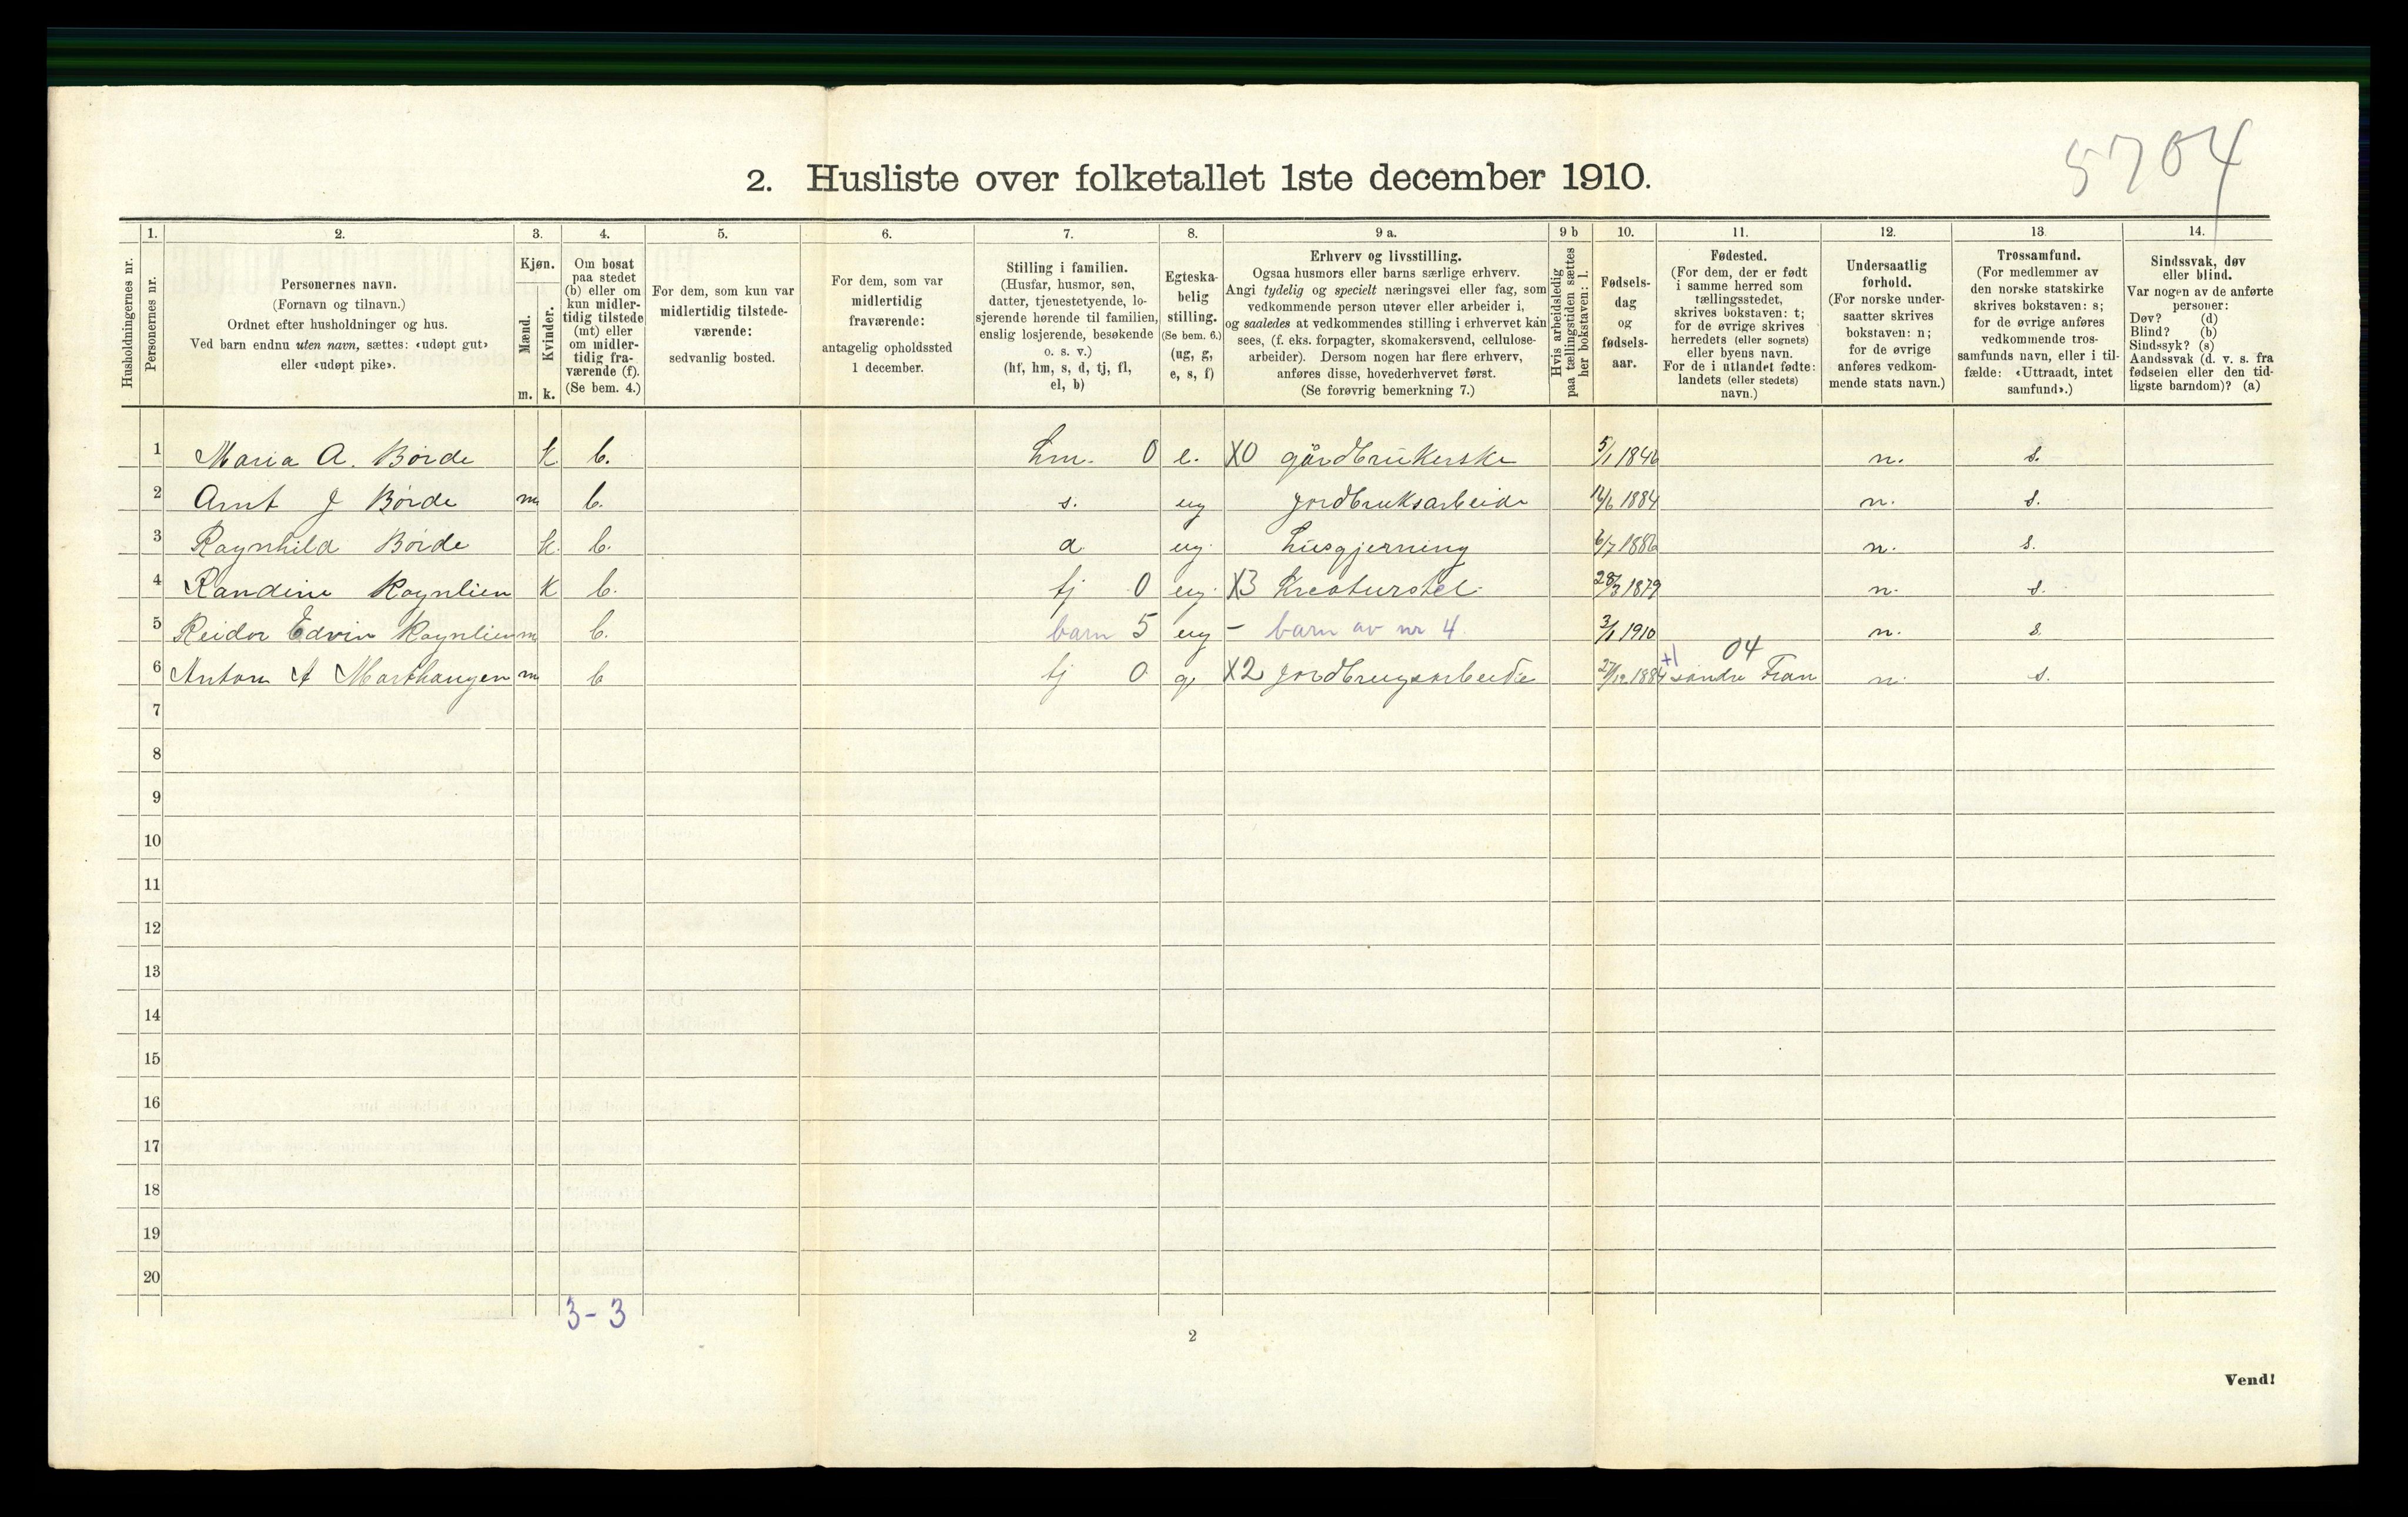 5704
2. Husliste over folketallet 1ste december 1910.
Husholdningernes nr.
1.
Personernes nr.
2.
Personernes navn.
(Fornavn og tilnavn.)
Ordnet efter husholdninger og hus.
Ved barn endnu uten navn, sættes: «udøpt gut»
eller «udøpt pike».
3.
Kjøn.
Mænd.
Kvinder.
m. k.
4.
Om bosat
paa stedet
(b) eller om
kun midler-
tidig tilstede
(mt) eller
om midler-
tidig fra-
værende (f).
(Se bem. 4.)
5.
For dem, som kun var
midlertidig tilstede-
værende:
sedvanlig bosted.
6.
For dem, som var
midlertidig
fraværende:
antagelig opholdssted
1 december.
7.
Stilling i familien.
(Husfar, husmor, søn,
datter, tjenestetyende, lo-
sjerende hørende til familien,
enslig losjerende, besøkende
o. s. v.)
(hf, hm, s, d, tj, fl,
el, b)
8.
Egteska-
belig
stilling.
(Se bem. 6.)
(ug, g,
e, s, f)
9 a.
Erhverv og livsstilling.
Ogsaa husmors eller barns særlige erhverv.
Angi tydelig og specielt næringsvei eller fag, som
vedkommende person utøver eller arbeider i,
og saaledes at vedkommendes stilling i erhvervet kan
sees, (f. eks. forpagter, skomakersvend, cellulose-
arbeider). Dersom nogen har flere erhverv,
anføres disse, hovederhvervet først.
(Se forøvrig bemerkning 7.)
9 b
Hvis arbeidsledig
paa tællingstiden sættes
her bokstaven: l.
10.
Fødsels-
dag
og
fødsels-
aar.
11.
Fødested.
(For dem, der er født
i samme herred som
tællingsstedet,
skrives bokstaven: t;
for de øvrige skrives
herredets (eller sognets)
eller byens navn.
For de i utlandet fødte:
landets (eller stedets)
navn.)
12.
Undersaatlig
forhold.
(For norske under-
saatter skrives
bokstaven: n;
for de øvrige
anføres vedkom-
mende stats navn.)
13.
Trossamfund.
(For medlemmer av
den norske statskirke
skrives bokstaven: s;
for de øvrige anføres
vedkommende tros-
samfunds navn, eller i til-
fælde: «Uttraadt, intet
samfund».)
14.
Sindssvak, døv
eller blind.
Var nogen av de anførte
personer:
Døv? (d)
Blind? (b)
Sindssyk? (s)
Aandssvak (d. v. s. fra
fødselen eller den tid-
ligste barndom)? (a)
1 Maria A. Børde k b. hm. 0 e. X0 gårdbrukerske 5/1 1846 n. s.
2 Arnt J Børde m b. s. ug jordbruksarbeide 16/6 1884 n. s.
3 Ragnhild Børde k b. d ug. husgjerning 6/7 1886 n. s.
4 Randine Rognlien k b. tj 0 ug. X3 Kreaturstel 28/3 1879 n. s.
5 Reidar Edvin Rognlien m b. barn 5 ug - barn av nr 4. 3/1 1910 n. s.
04
6 Anton A Marthaugen m b tj 0 g. X2 jordbrugsarbeide 27/12 1884 +1 søndre Fron n. s.
7
8
9
10
11
12
13
14
15
16
17
18
19
20
3-3
2
Vend!